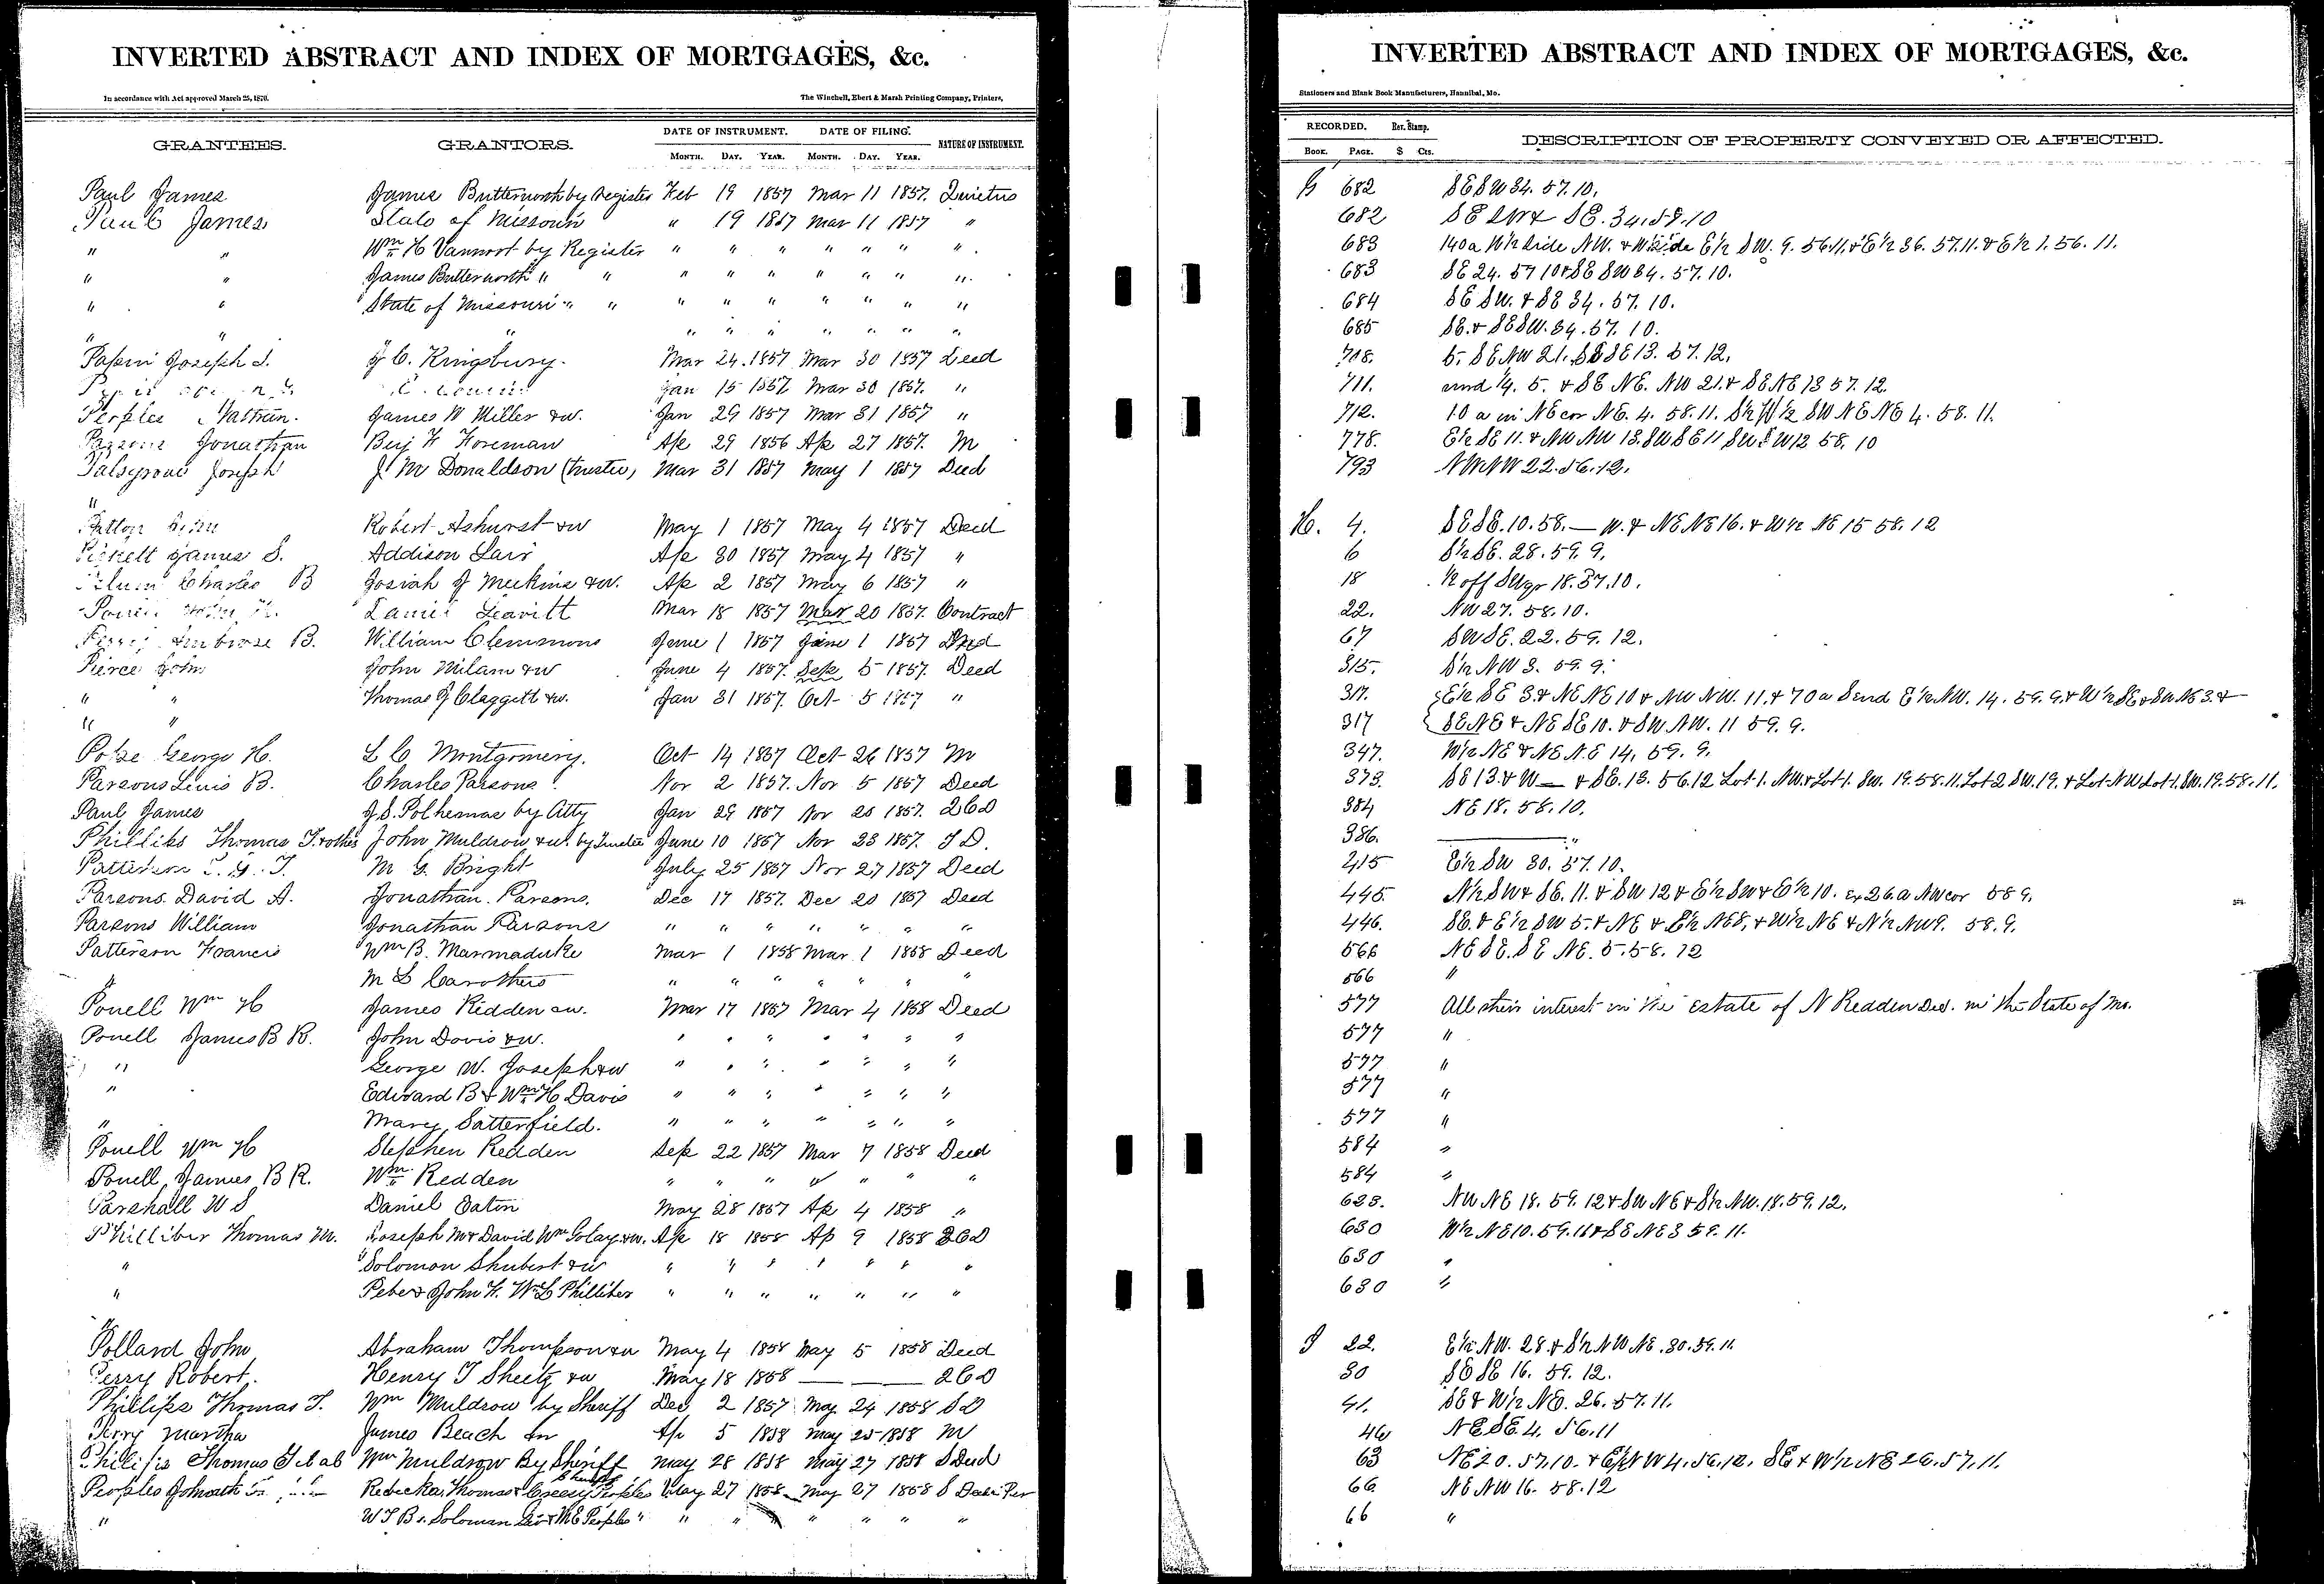 INVERTED ABSTRACT AND INDEX OF MORTGAGES, &c.
In accordance with Act approved March 25, 1870.
The Winchell, Ebert & Marsh Printing Company, Printers,
GRANTEES. GRANTORS. DATE OF INSTRUMENT. DATE OF FILING. NATURE OF INSTRUMENT.
MONTH. DAY. YEAR. MONTH. DAY. YEAR.
Paul James James Butterworth by Register Feb 19 1857 Mar 11 1857. Quietus
Paul James State of Missouri " 19 1857 Mar 11 1857 "
" " Wm H Vannort by Register " " " " " " "
" " James Butterworth " " " " " " " " "
" " State of Missouri " " " " " " " " "
" " " " " " " " " "
Joseph S. J C. Kingsbury. Mar 24. 1857 Mar 30 1857 Deed
Jan 15 1857 Mar 30 1857. "
Peoples Nathan. James W Miller &w. Jan 29 1857 Mar 31 1857 "
Parsons Jonathan Benj F Foreman Ap 29 1856 Ap 27 1857. M
Joseph J M Donaldson (Trustee) Mar 31 1857 May 1 1857 Deed
"
Patton Robert Ashurst &w May 1 1857 May 4 1857 Deed
Pickett James S. Addison Lair Ap 30 1857 May 4 1857 "
Charles B Josiah J Meekins &w. Ap 2 1857 May 6 1857 "
Daniel Leavitt Mar 18 1857 Mar 20 1857. Contract
Ambrose B. William Clemmons June 1 1857 June 1 1857 Deed
Pierce John John Milam &w June 4 1857. Sep 5 1857. Deed
" " Thomas J Claggett &w. Jan 31 1857. Oct 5 1857 "
" "
George H. L C Montgomery. Oct 14 1857 Oct 26 1857 M
Parsons Lewis B. Charles Parsons. Nov 2 1857. Nov 5 1857 Deed
Paul James J. S. Polhemus by Atty Jan 29 1857 Nov 20 1857. 2 C D
Phillibs Thomas T. & others John Muldrow &w. by Trustee June 10 1857 Nov 23 1857. T D.
Patterson M G. Bright July 25 1857 Nov 27 1857 Deed
Parsons. David A. Jonathan. Parsons. Dec 17 1857. Dec 20 1857 Deed
Parsons William Jonathan Parsons " " " " " " "
Patterson Francis Wm B. Marmaduke Mar 1 1858 Mar. 1 1858 Deed
M L Carothers " " " " " "
Powell Wm H James Redden &w. Mar 17 1857 Mar 4 1858 Deed
Powell James B R. John Davis &w. " " " " " " "
" George W. Joseph &w " " " " " " "
" Edward B & Wm H Davis " " " " " " "
" Mary Satterfield. " " " " " " "
Powell Wm H Stephen Redden Sep 22 1857 Mar 7 1858 Deed
Powell, James B R. Wm Redden " " " " " " "
Parshall W S Daniel Eaton May 28 1857 Ap 4 1858 "
Philliber Thomas M. Joseph M & David Wm Golay &w. Ap 18 1858 Ap 9 1858 2 C D
" Solomon Shubert &w " " " " " " "
" Peter & John H. Wm L Philliber " " " " " " "
"
Pollard John Abraham Thompson &w May 4 1858 May 5 1858 Deed
Perry Robert. Henry T Sheetz &w May 18 1858 — — 2 C D
Phillips Thomas T. Wm Muldrow by Sheriff Dec 2 1857 May 24 1858 S D
Perry Martha James Beach &w Ap 5 1858 May 25 1858 M
Phillips Thomas T et al Wm Muldrow By Sheriff May 28 1858 May 27 1858 S Deed
Peoples Rebecka, Thomas & Peoples May 27 1858 May 27 1858
" W T B. Soloman Geo & M E Peoples " " " " " " "
INVERTED ABSTRACT AND INDEX OF MORTGAGES, &c.
Stationers and Blank Book Manufacturers, Hannibal, Mo.
RECORDED. Rev. Stamp. DESCRIPTION OF PROPERTY CONVEYED OR AFFECTED.
BOOK. PAGE. $ Cts.
G 682 SE SW 34. 57. 10.
682 SE SW & SE. 34. 57. 10
683 140 a W½ side NW. & W side E½ SW. 9. 56. 11. & E½ 36. 57. 11. & E½ 1. 56. 11.
683 SE 24. 57 10 & SE SW 34. 57. 10.
684 SE SW. & SE 34. 57. 10.
685 SE. & SE SW. 34. 57. 10.
708. 5. SE NW 21. SE SE 13. 57. 12.
711. und ¼. 5. & SE NE. NW 21. & SE NE 13 57. 12.
712. 10 a in NE cor NE. 4. 58. 11. S½ W½ SW NE NE 4. 58. 11.
778. E½ SE 11. & NW NW 13. SW SE 11 SW S W 12 58. 10
793 NW NW 22. 56. 12.
H. 4. SE SE. 10. 58. — W. & NE NE 16. & W½ NE 15 58. 12
6 S½ SE. 28. 59. 9.
18 ½ off SW qr 18. 57. 10.
22. NW 27. 58. 10.
67 SW SE. 22. 59. 12.
315. S½ NW 3. 59. 9.
317. E½ SE 3. & NE NE 10 & NW NW. 11. & 70 a S end E½ NW. 14. 59. 9. & W½ SE & SW NE 3. &
317 SE NE & NE SE 10. & SW NW. 11 59. 9.
347. W½ NE & NE NE 14. 59. 9.
373. SE 13. & W — & SE. 13. 56. 12 Lot 1. NW. & Lot 1. SW. 19. 58. 11. Lot 2 SW. 19. & Lot NW Lot 1. SW. 19. 58. 11.
384 NE 18. 58. 10.
386. — " —
415 E½ SW 30. 57. 10.
445. N½ SW & SE. 11. & SW 12 & E½ SW & E½ 10. ex 26. a NW cor 58 9.
446. SE. & E½ SW 5. & NE & E½ NE 8. & W½ NE & N½ NW 9. 58. 9.
566 NE SE. SE NE. 5. 58. 12
566 "
577 All their interest in the estate of N Redden Dec. in the State of Mo.
577 "
577 "
577 "
577 "
584 "
584 "
623. NW NE 18. 59. 12 & SW NE & S½ NW. 18. 59. 12.
630 W½ NE 10. 59. 11 & SE NE 3 59. 11.
630 "
630 "
I 22. E½ NW. 28. & S½ NW NE. 30. 59. 11.
30 SE SE 16. 59. 12.
41. SE & W½ NE. 26. 57. 11.
46 NE SE. 4. 56. 11
63 NE 20. 57. 10. & E½ NW 4. 56. 12. SE & W½ NE 26. 57. 11.
66. NE NW 16. 58. 12
66 "